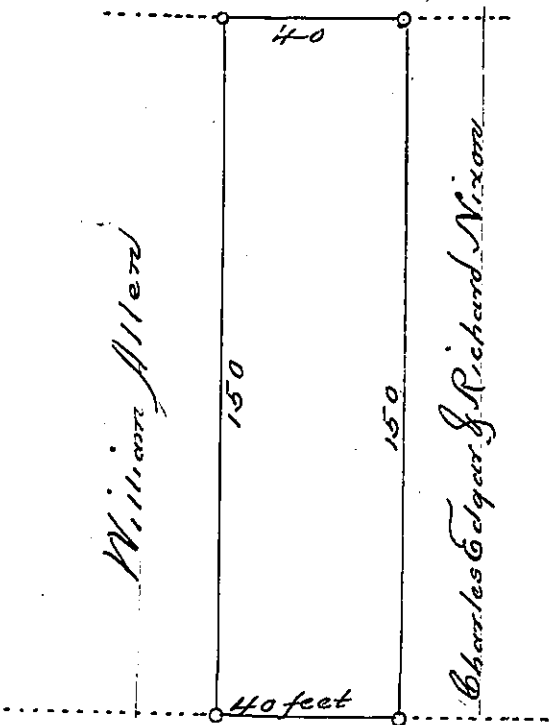 40
William Allen
150
150
Charles Edgar & Richard Nixon
40 feet